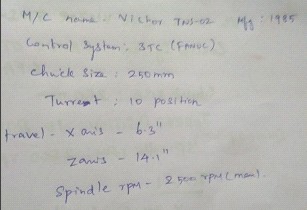 M/C name :- Nichor TNS-02 Mfg : 1985
Control System :- 3TC (FANUC)
Chuck Size : 250mm
Turret : 10 position
travel - X axis - 6.3"
Z axis - 14.1"
Spindle rpm - 2500 rpm (max).